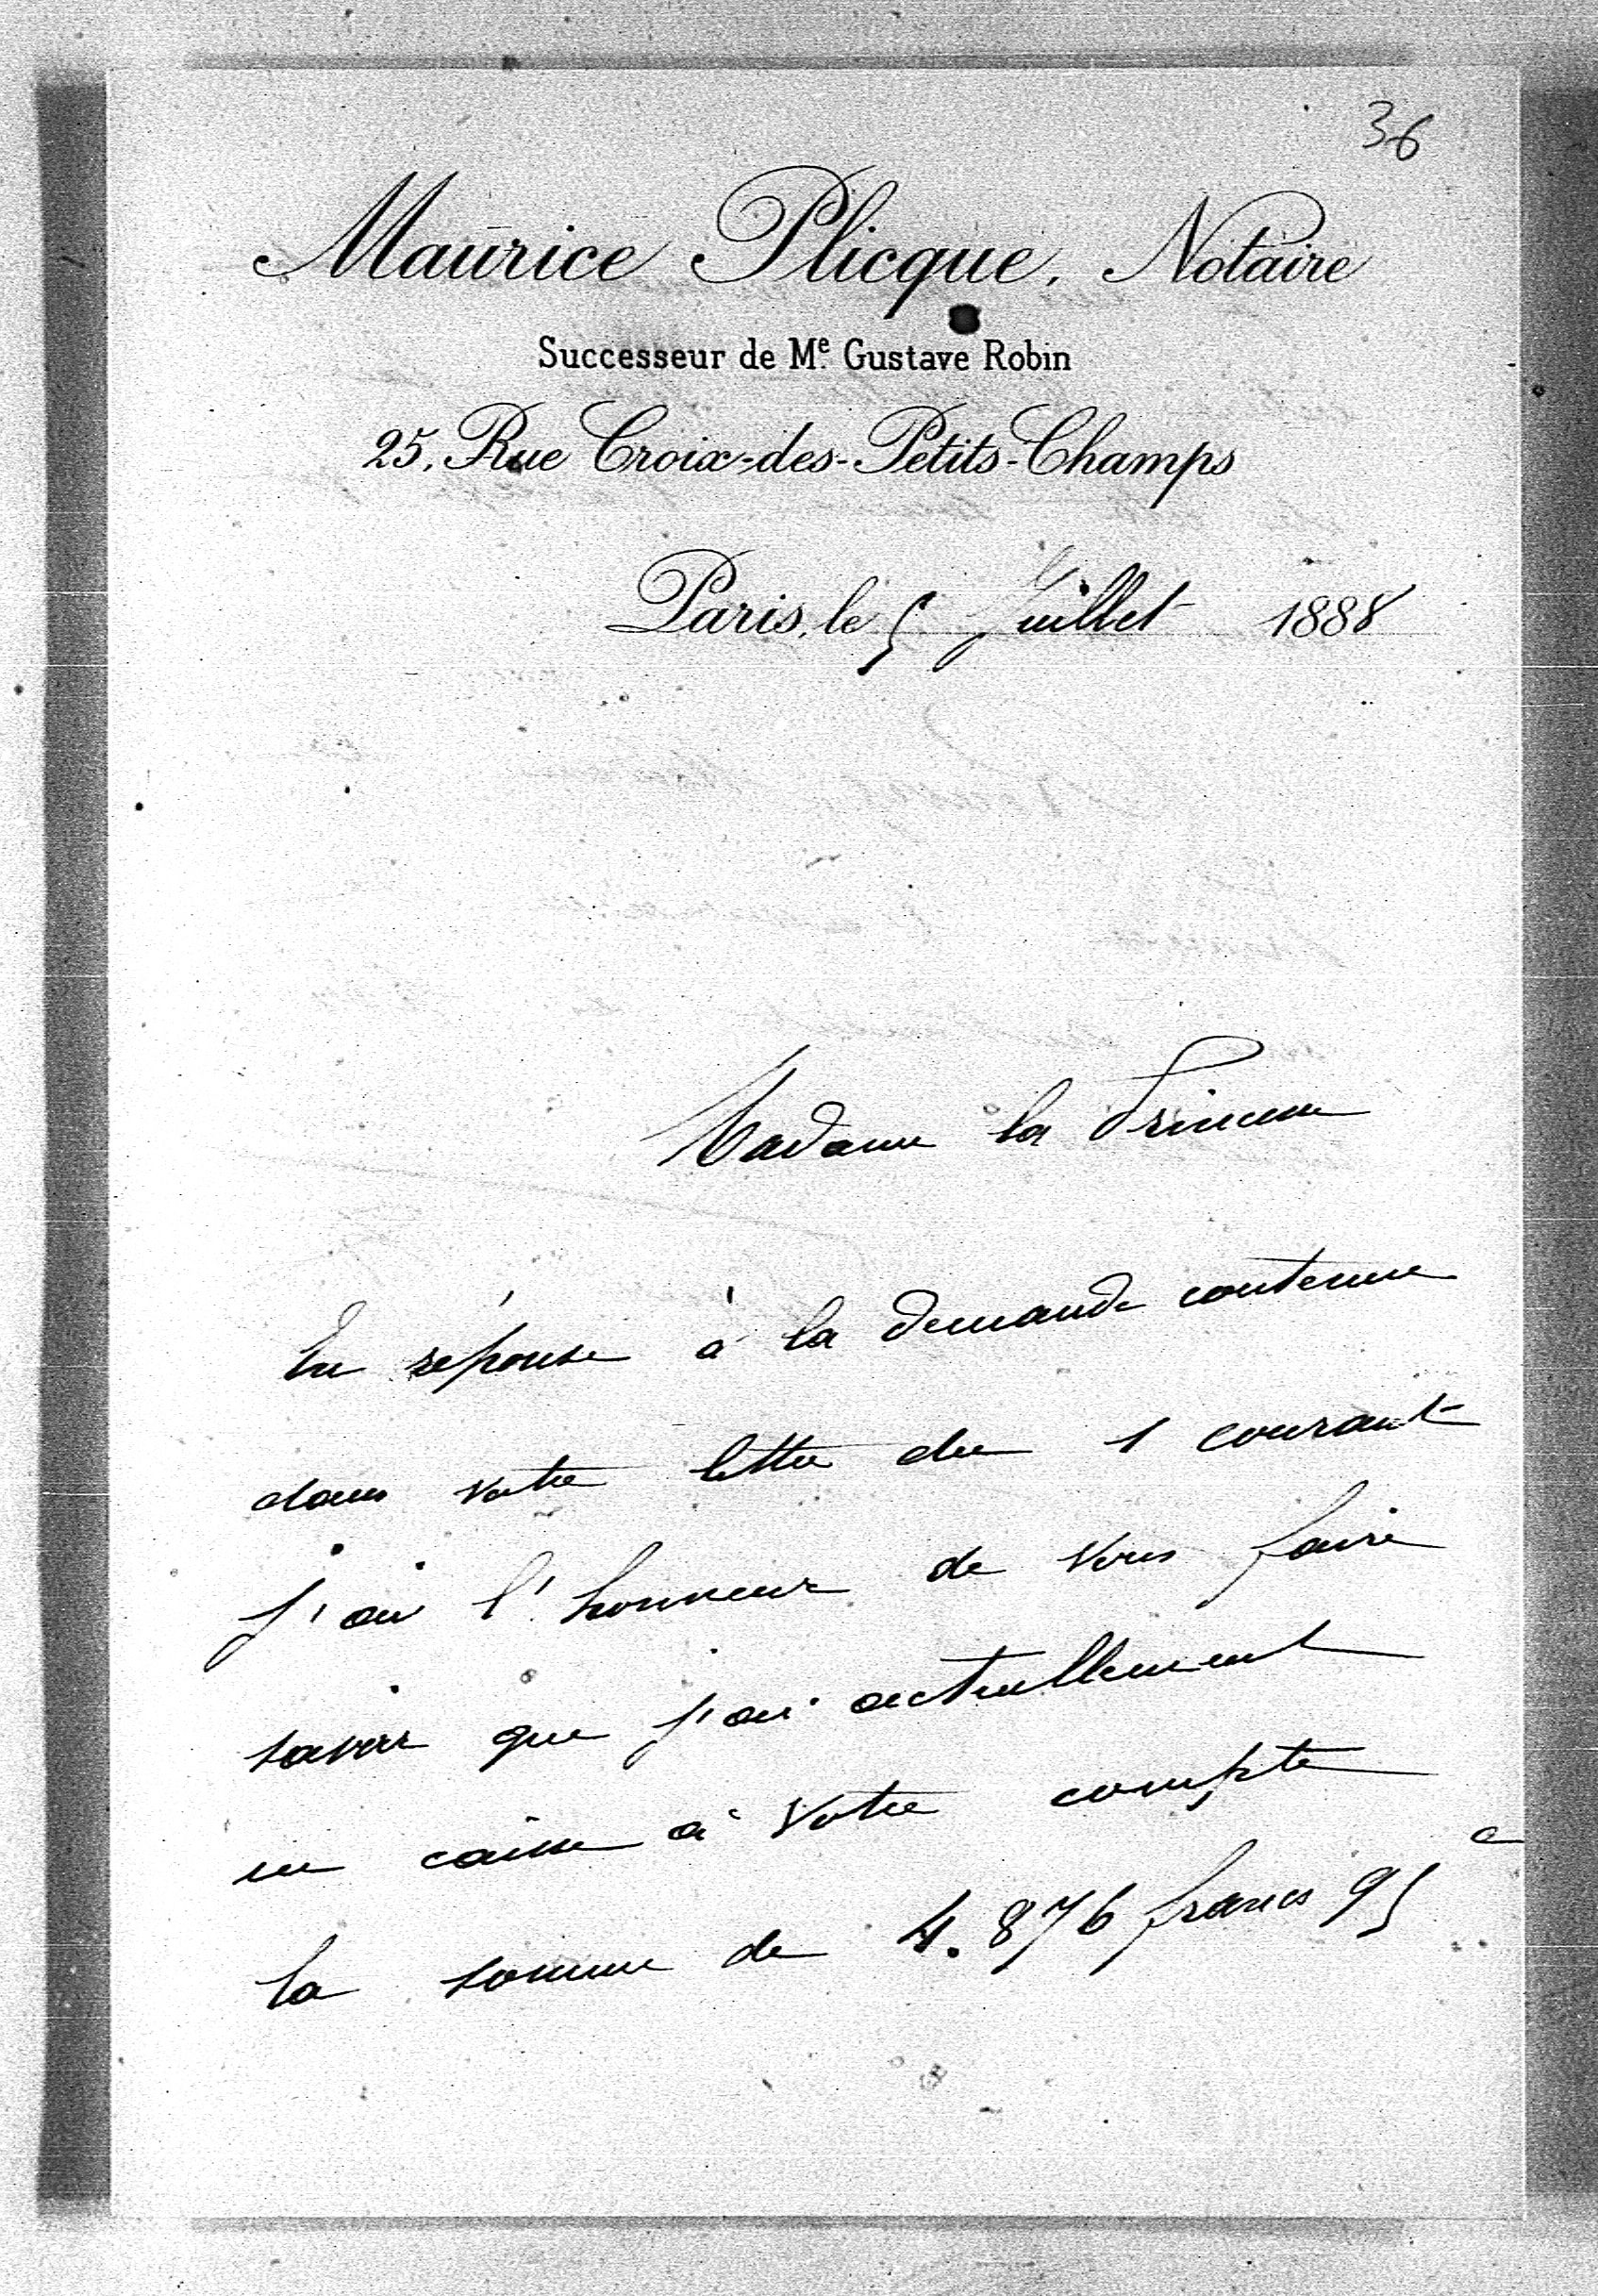 36
Maurice Plicque, Notaire
Successeur de Me Gustave Robin
25, Rue Croix-des-Petits-Champs
Paris, le 5 Juillet 1888
Madame la Princesse
En réponse à la demande contenue
dans votre lettre du 1 courant
j'ai l'honneur de vous faire
savoir que j'ai actuellement
en caisse à votre compte
la somme de 4.876 francs 95 c